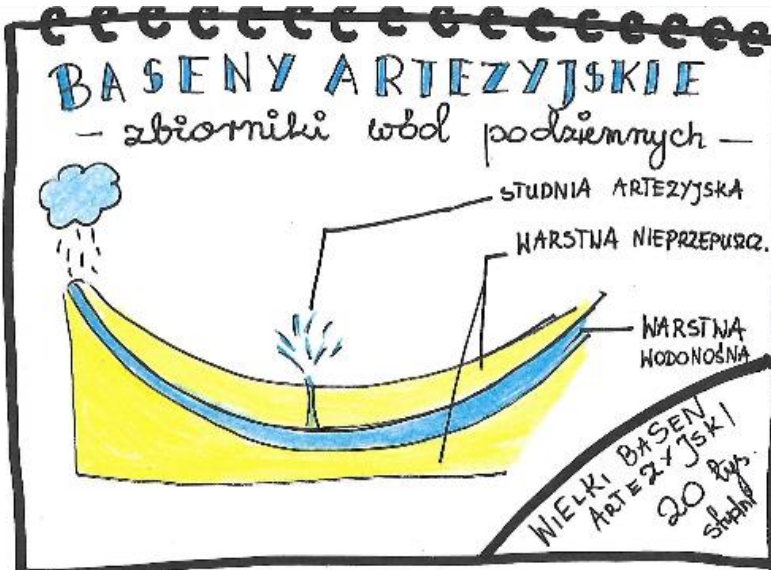 BASENY ARTEZYJSKIE
– zbiorniki wód podziemnych –
STUDNIA ARTEZYJSKA
WARSTWA NIEPRZEPUSZCZ.
WARSTWA
WODONOŚNA
WIELKI BASEN
ARTEZYJSKI
20 tys.
studni